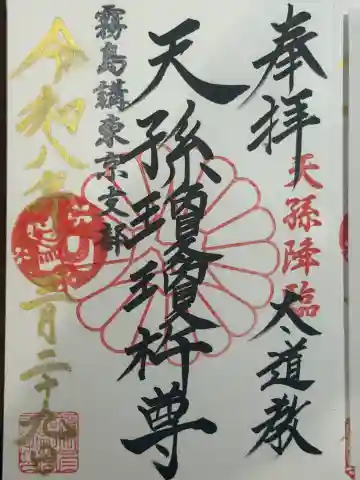 奉拝
天孫降臨
大道教
天孫瓊瓊杵尊
霧島講東京支部
令和八年二月二十九日